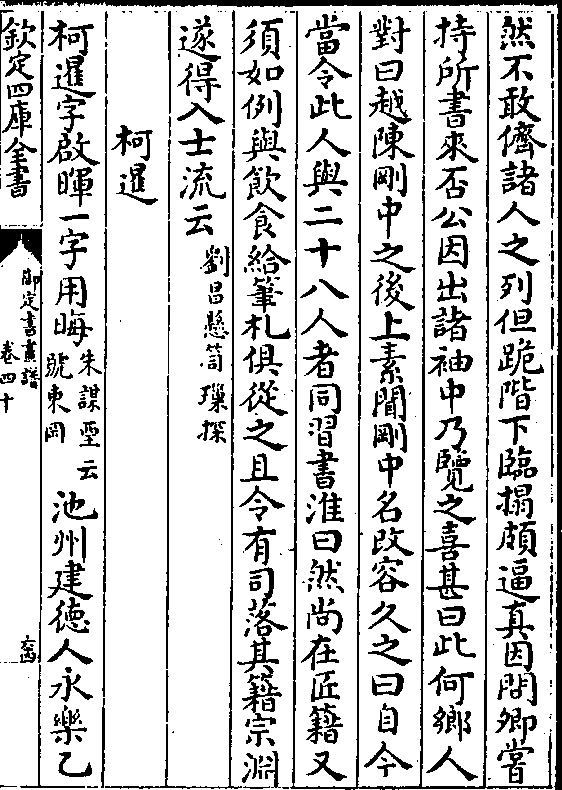 然不敢儕諸人之列但跪階下臨搨頗逼真因問卿嘗
持所書來否公因出諸袖中乃覽之喜甚曰此何鄉人
對曰越陳剛中之後上素聞剛中名改容久之曰自今
當令此人與二十八人者同習書淮曰然尚在匠籍又
須如例與飲食給筆札俱從之且令有司落其籍宗淵
遂得入士流云劉昌懸笥璅探
柯暹
柯暹字啟暉一字用晦朱謀垔云號東岡池州建德人永樂乙
欽定四庫全書
御定書畫譜
卷四十